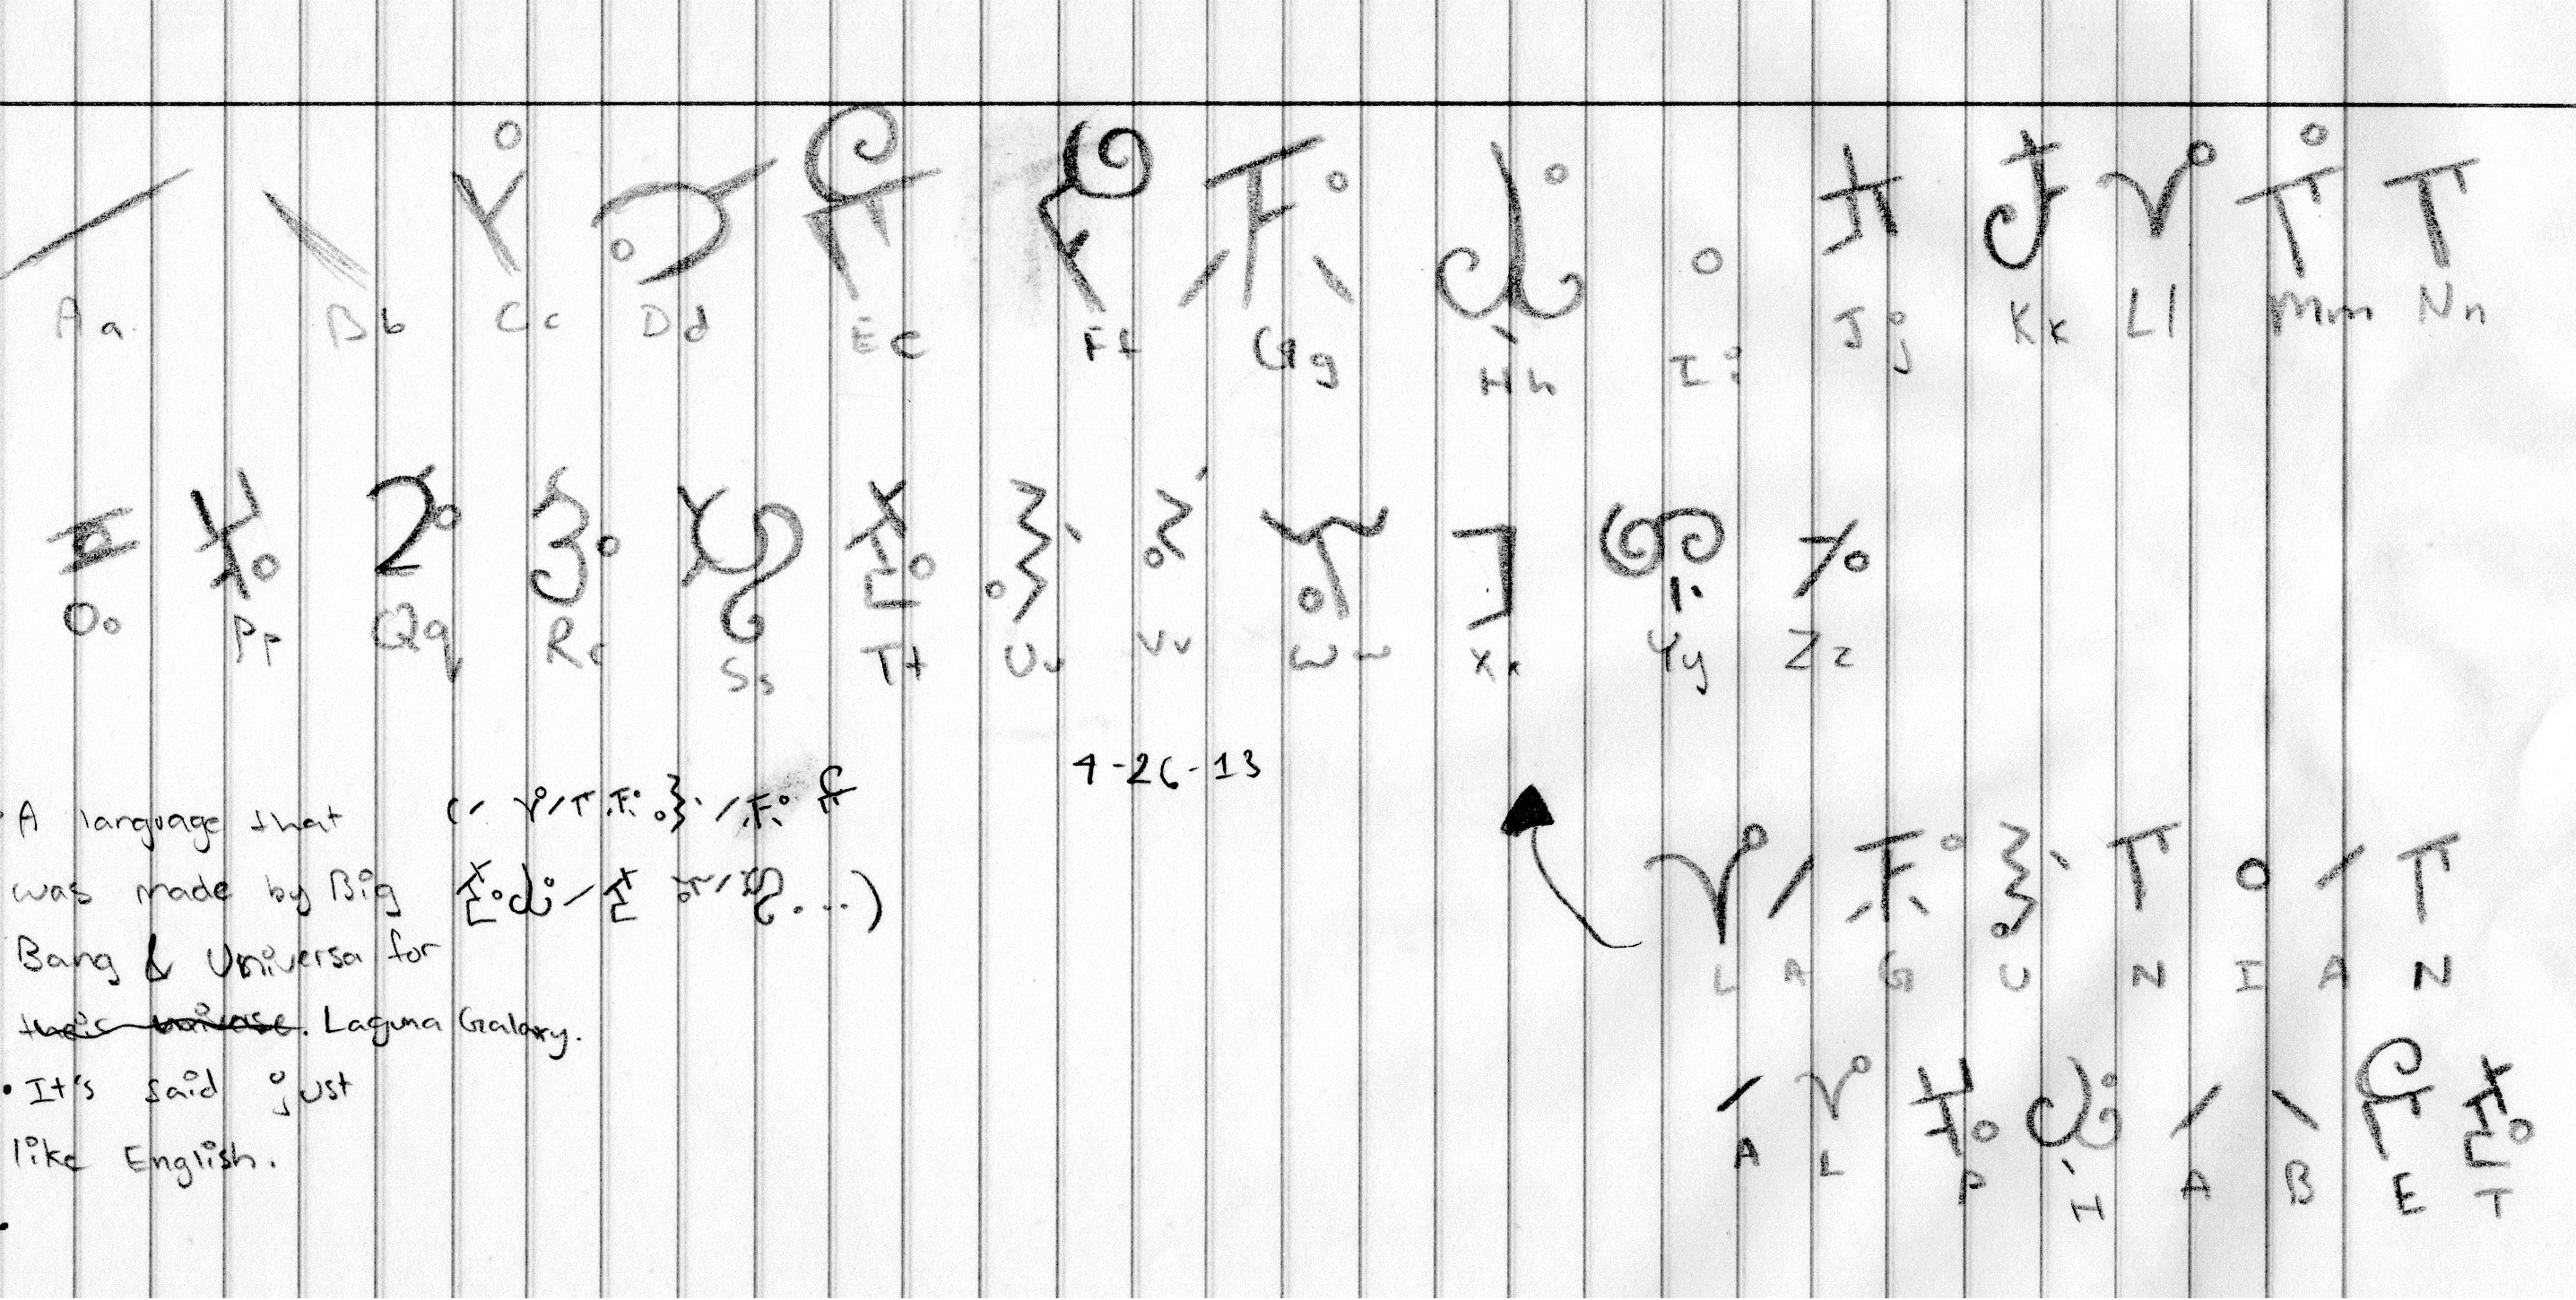 Aa Bb Cc Dd Ee Ff Gg Hh Ii Jj Kk Ll Mm Nn
Oo Pp Qq Rr Ss Tt Uu Vv Ww Xx Yy Zz
4-26-13
A language that
was made by Big
Bang & Universa for
their universe. Laguna Galaxy.
• It's said just
like English.
LAGUNIAN
ALPHABET